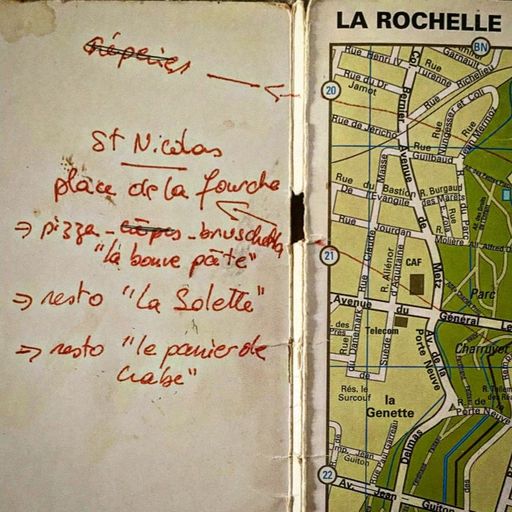 crêperies
St Nicolas
place de la fourche
⇒ pizza - crêpes - bruschetta
"la bonne pâte"
⇒ resto "La Solette"
⇒ resto "le panier de
crabe"
LA ROCHELLE
BN
20
21
22
Rue Henri IV
Rue du Dr
Jamot
Rue de Jéricho
Rue
Garnault
Rue
Turenne
Richelieu
Rue
Nungesser et Coli
Jean Mermoz
Rue
Guilbaud
Avenue de Metz
Masse
Rue Claude
Rue du Bastion
De L'Evangile
R. Burgaud
des Marets
Rue du Parc
Rue
Jourdan
R.
Molière
All. Alfred D
R. Aliénor
d'Aquitaine
CAF
Parc
Charruyer
Avenue du Général Le
Telecom
Rue
des Prés
R. du Danemark
Rue de
Suède
Av. de la
Porte Neuve
Rés. le
Surcouf
la
Genette
R. de
Porte Neuve
Imp. Jean
Guiton
Rue Paul Garreau
Delmas
Av. Jean Guiton